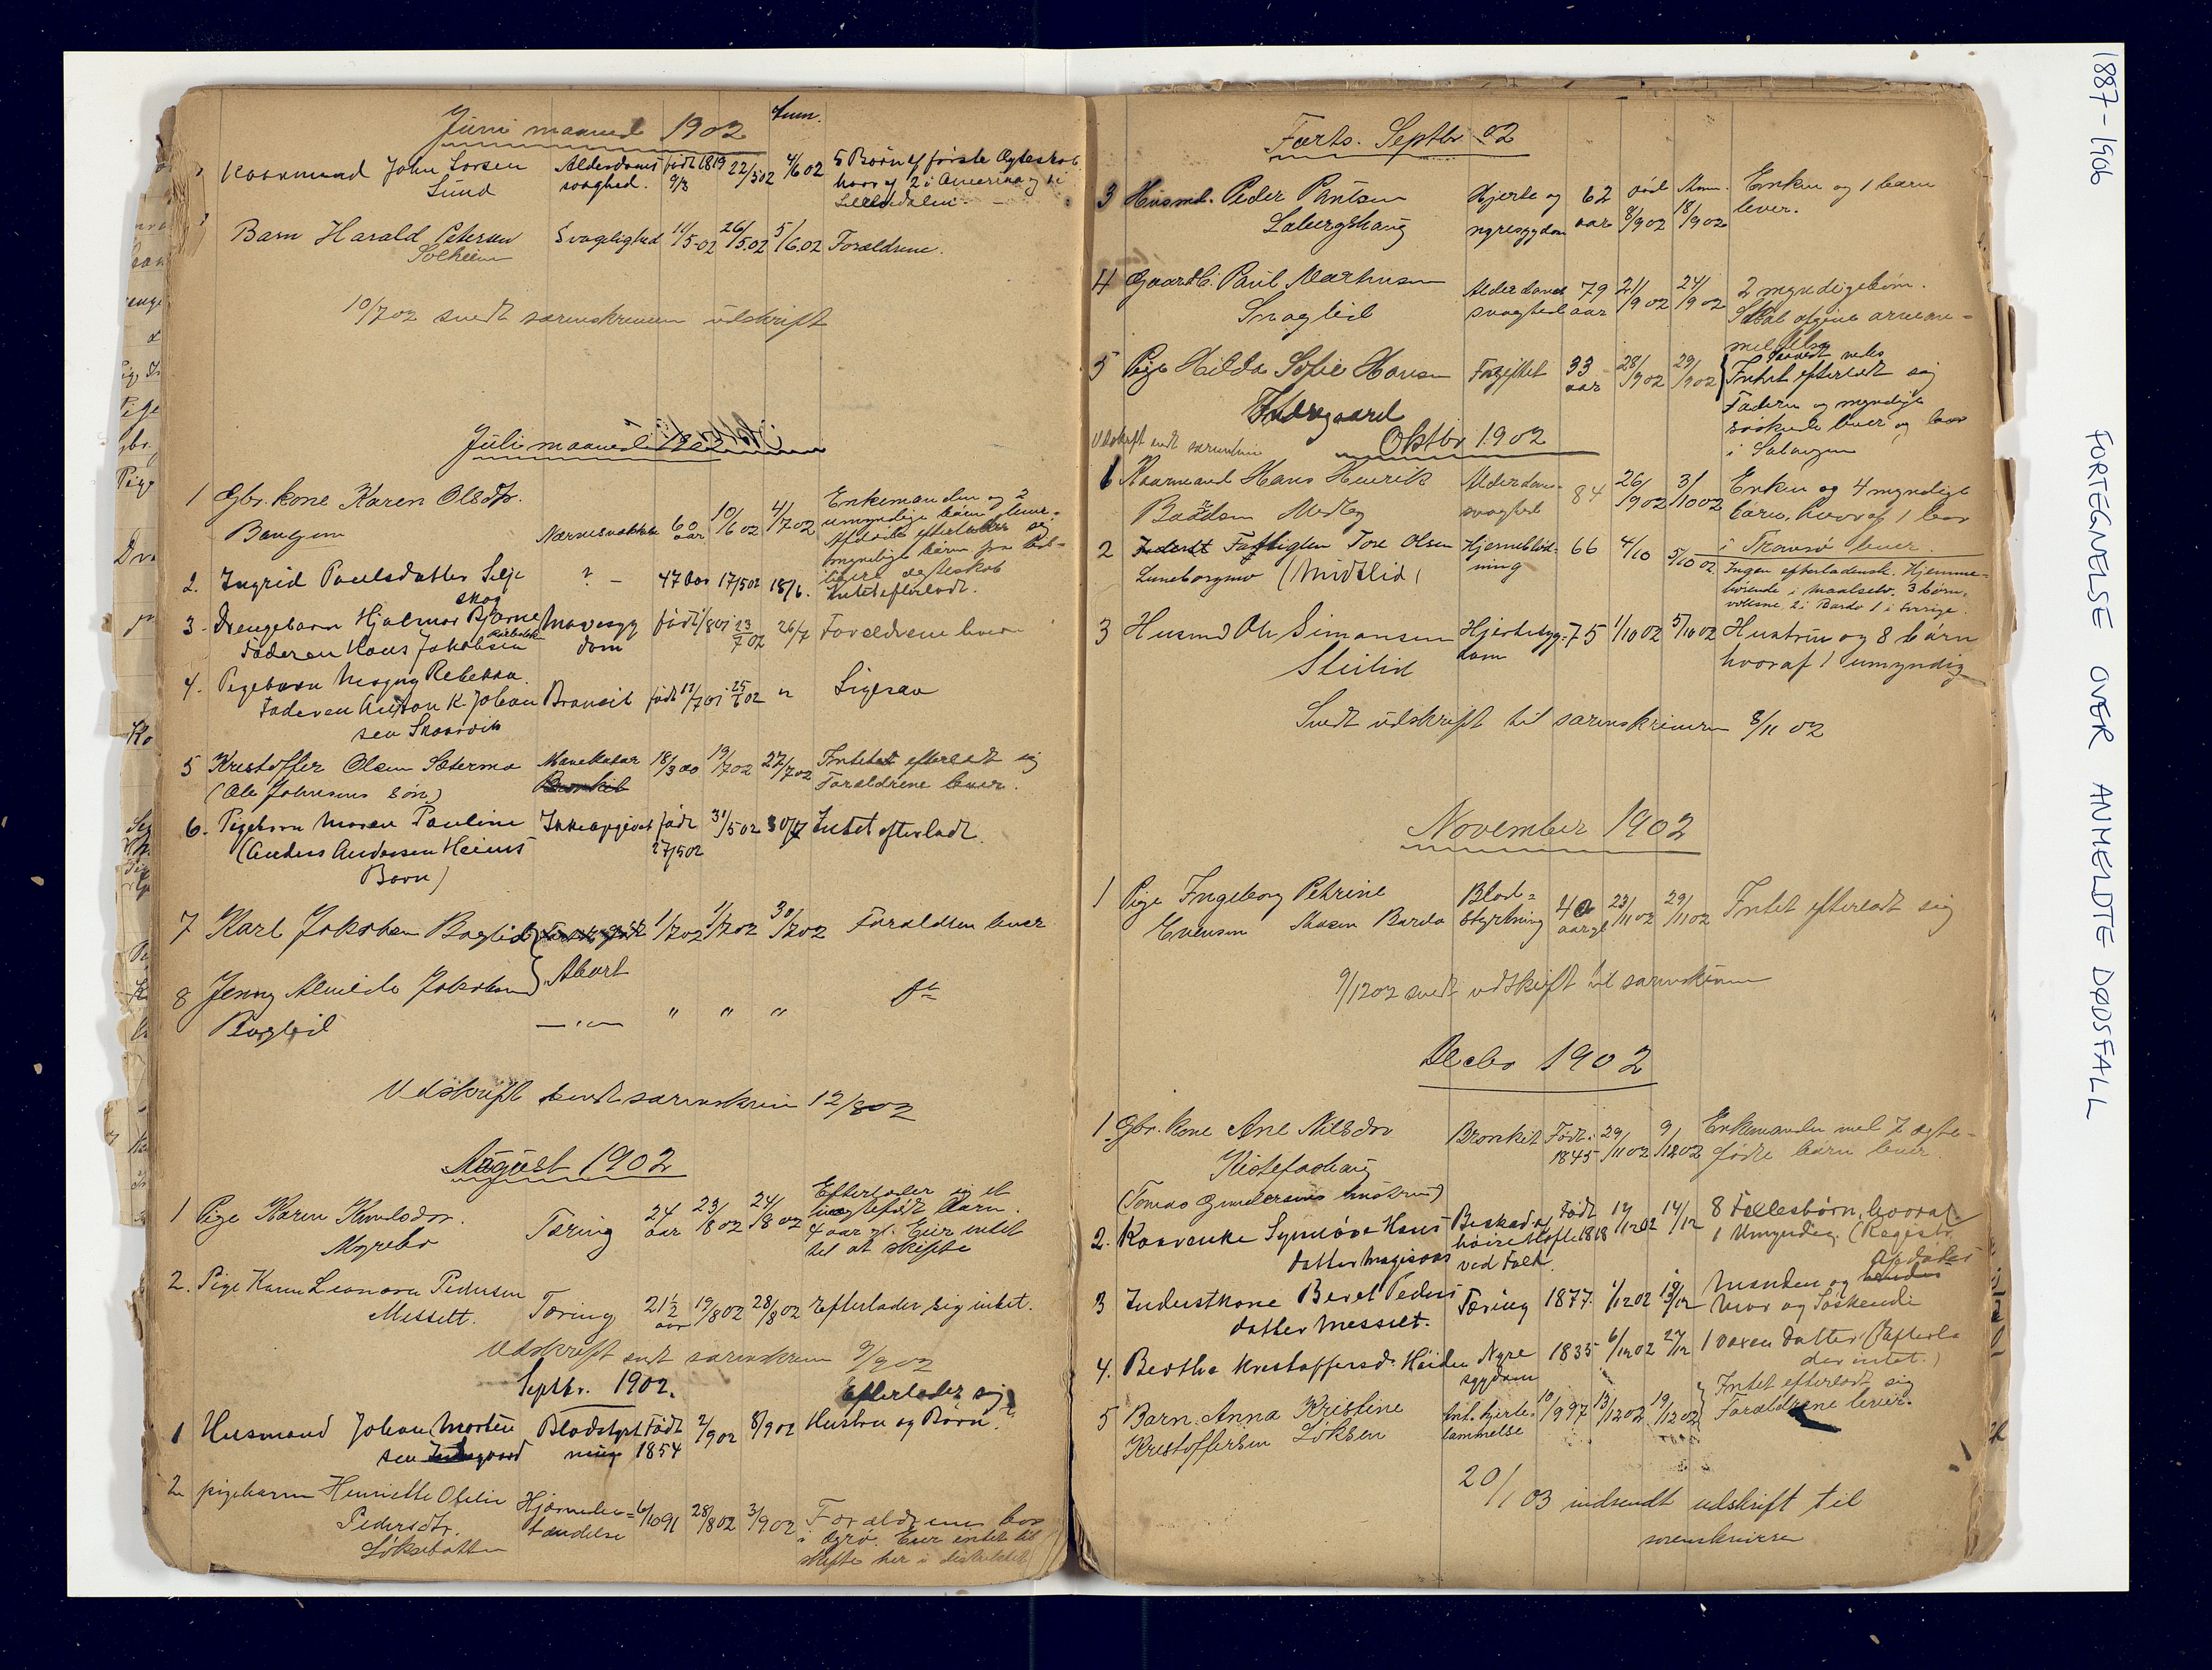 Juni maaned 1902
Kaarmand John Larsen Alderdoms født 1819 22/5 02 4/6 02 5 Børn af første Ægteskab
Lund svaghed. 9/3 hvoraf 2 i Amerika og
Barn Harald Petersen Svagelighed 11/5-02 26/5.02 5/6.02 Forældrene.
Solheim
10/7 02 sendt sorenskriveren udskrift
Juli maaned 1902
1 Gbr. kone Karen Olsdtr. Enkemanden og 2
umyndige børn lever.
Bangsun 60 aar 10/6 02 4/7 02
myndige børn fra
2. Ingrid Paulsdatter Selje ? - 47 Aar 17/5 02 18/6. ægteskab
skog Intet efterladt.
3. Drengebarn Hjalmar Bjarne Mavesyg født 1/8 01 23/7 02 26/7 Forældrene lever
Faderen Hans Jakobsen dom
4. Pigebarn Magny Rebekka.
Faderen Anton K. Johan Bronkit født 12/7 01 25/6 02 " Ligesaa
sen
5 Kristoffer Olsen Sætermo Mavekatar 18/3 00 19/7 02 27/7 02 Intet efterladt sig
(Ole Johnsens Søn) Bronkit Forældrene lever.
6. Pigebarn Maren Pauline Ikke opgivet født 31/5 02 30/7 Intet efterladt.
(Anders Andersen Heims 27/5 02
Barn)
7 Karl Jakobsen Boglid 1/7 02 1/7 02 30/7 02 Forældren lever
8 Jenny Alvilde Jakobsen Abort
Boglid —"— " " "
Udskrift sendt sorenskriv 12/8 02
August 1902
Efterlader sig et
1 Pige Karen Knudsdtr. 24 23/8 02 24/8 02 uægtefødt Barn.
Myrebo Tæring aar 4 aar gl. Eier intet
til at skifte
2. Pige Karen Leonora Pedersen
Messelt. Tæring 21½ aar 19/8 02 28/8 02 Efterlader sig intet.
Udskrift sendt sorenskriv 9/9 02
Septbr. 1902. Efterlader sig
1 Husmand Johan Morten Blodstyrt Født 2/9 02 8/9 02 Hustru og Børn
sen ning 1854
2 pigebarn Henriette Ofelie Hjærnebe= 6/10 91 28/8 02 3/9 02 Forældrene bor
Pedersdtr. tændelse i Øgsø. Eier intet til
Løksebotten skifte her i distriktet
Forts. Septbr 02
3 Husmd. Peder Pantsen Hjerte og 62 død Anm. Enken og 1 barn
nyresygdom aar 8/9 02 18/9 02 lever.
4 Gaardb. Paul Marthinsen Alderdoms 79 21/9 02 24/9 02 2 myndige børn.
svaghed aar Skal afgive
5 Pige Hilda Sofie Hansen Forgiftet 33 aar 28/9 02 29/9 02 Intet efterladt sig
Indergaard Faderen og myndige
Udskrift sendt Oktbr 1902 søskende lever og bor
i Salangen
1 Kaarmand Hans Henrik Alderdoms= 84 26/9 02 3/10 02 Enken og 4 myndige
Medby svaghed børn, hvoraf 1 bor
i Tromsø
2 Inderst Fattiglem Tore Olsen Hjerneblød= 66 4/10 5/10 02
Luneborgmo (Midtlid) ning Ingen efterladensk. Hjemme=
hørende i Maalselv. 3 børn,
voksne, 2 i Bardo 1 i Sverige.
3 Husmd Ole Simonsen Hjertesyg= 75 1/10 02 5/10 02 Hustru og 8 børn
Sleilid dom hvoraf 1 umyndig
Sendt udskrift til sorenskriveren 8/11 02
November 1902
1 Pige Ingeborg Petrine Blod= 40 23/11 02 29/11 02 Intet efterladt sig
Evensen Moen Bardo styrtning aar gl
9/12 02 sendt udskrift til sorenskriveren
Decbr 1902
1 Gbr. kone Ane Nilsdtr Bronkit Født: 29/11 02 9/12 02 Enkemanden med 7 ægte=
Kistefoshaug 1845 fødte børn lever
(Tomas Gundersens hustru)
2. Kaarenke Synnøve Hans Beskad. af Født 14/12 8 Fællesbørn, hvoraf
datter høire Hofte 1818 1 Umyndig. (Registr.
ved Fald.
3 Inderstkone Beret Peders Tæring 1877. 1/12 02 13/12 Manden og
datter Messelt. Mor og Søskende
4. Bertha Kristoffersd. Høiden Nyre 1835 6/12 02 27/12 1 voxen datter (Efterla
sygdom der intet.)
5 Barn. Anna Kristine Ant. hjerte= 10/9 97 13/12 02 19/12 02 Intet efterladt sig
Kristoffersen Løksen lammelse Forældrene lever.
20/1 03 indsendt udskrift til
sorenskriveren
1887-1906 FORTEGNELSE OVER ANMELDTE DØDSFALL